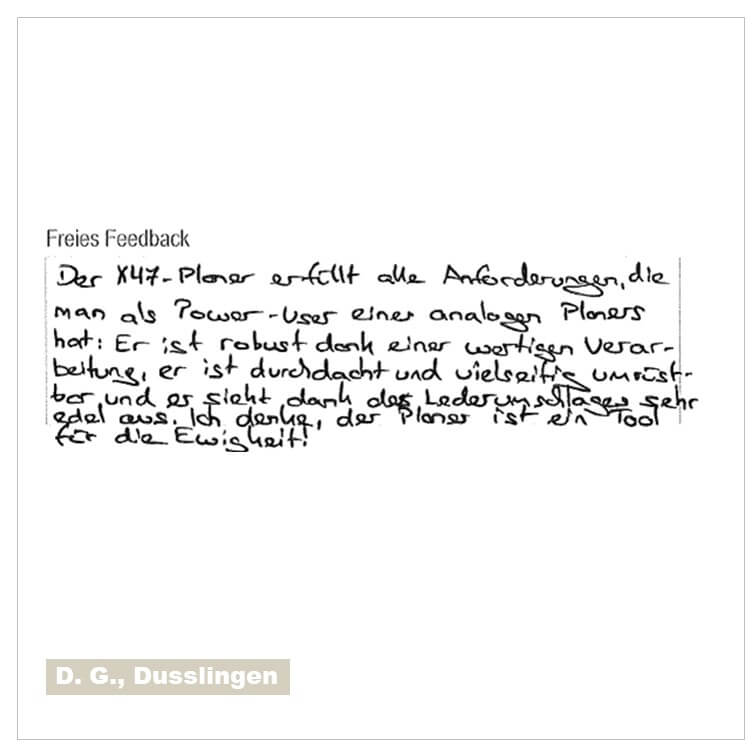 Freies Feedback
Der X47-Planer erfüllt alle Anforderungen, die
man als Power-User eines analogen Planers
hat: Er ist robust dank einer wertigen Verar-
beitung, er ist durchdacht und vielseitig umrüst-
bar, und er sieht dank des Lederumschlages sehr
edel aus. Ich denke, der Planer ist ein Tool
für die Ewigkeit!
D. G., Dusslingen